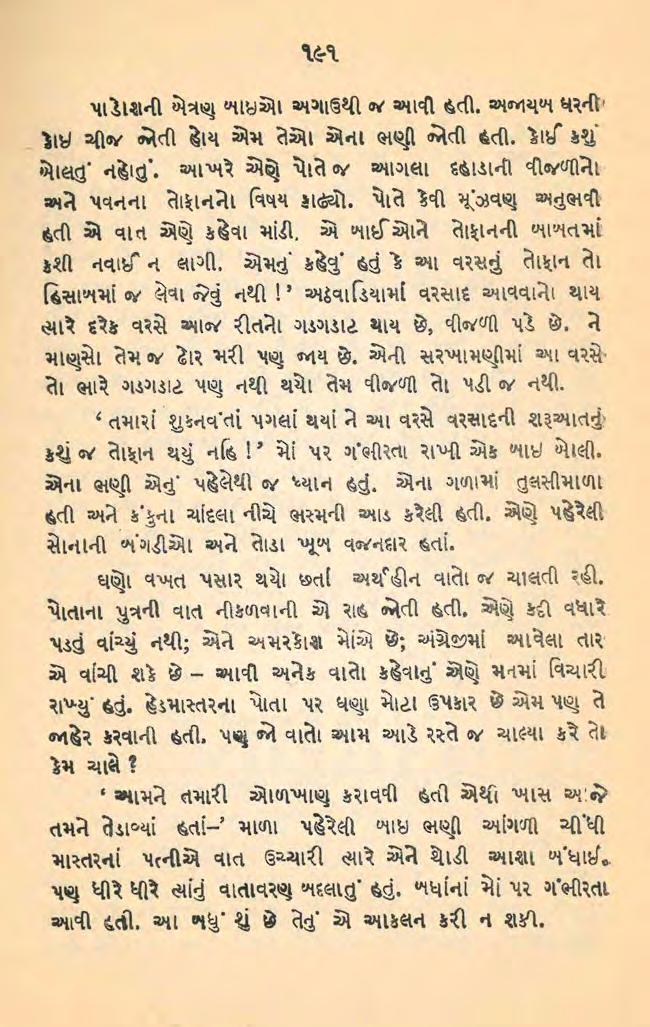 ૧૯૧
પાડોશની બેત્રણ બાઈઓ અગાઉથી જ આવી હતી. અજાયબ ઘરની
કોઈ ચીજ જોતી હોય એમ તેઓ એના ભણી જોતી હતી. કોઈ કશું
બોલતું નહોતું. આખરે એણે પોતે જ આગલા દહાડાની વીજળીનો
અને પવનના તોફાનનો વિષય કાઢ્યો. પોતે કેવી મૂંઝવણ અનુભવી
હતી એ વાત એણે કહેવા માંડી. એ બાઈઓને તોફાનની બાબતમાં
કશી નવાઈ ન લાગી. એમનું કહેવું હતું કે આ વરસનું તોફાન તો
હિસાબમાં જ લેવા જેવું નથી !’ અઠવાડિયામાં વરસાદ આવવાનો થાય
ત્યારે દરેક વરસે આજ રીતનો ગડગડાટ થાય છે, વીજળી પડે છે. ને
માણસો તેમ જ ઢોર મરી પણ જાય છે. એની સરખામણીમાં આ વરસે
તો ભારે ગડગડાટ પણ નથી થયો તેમ વીજળી તો પડી જ નથી.
‘ તમારાં શુકનવંતાં પગલાં થયાં ને આ વરસે વરસાદની શરૂઆતનું
કશું જ તોફાન થયું નહિ !’ મોં પર ગંભીરતા રાખી એક બાઈ બોલી.
એના ભણી એનું પહેલેથી જ ધ્યાન હતું. એના ગળામાં તુલસીમાળા
હતી અને કંકુના ચાંદલા નીચે ભસ્મની આડ કરેલી હતી. એણે પહેરેલી
સોનાની બંગડીઓ અને તોડા ખૂબ વજનદાર હતાં.
ઘણો વખત પસાર થયો છતાં અર્થહીન વાતો જ ચાલતી રહી.
પોતાના પુત્રની વાત નીકળવાની એ રાહ જોતી હતી. એણે કદી વધારે
પડતું વાંચ્યું નથી; એને અમરકોશ મોંએ છે; અંગ્રેજીમાં આવેલા તાર
એ વાંચી શકે છે – આવી અનેક વાતો કહેવાનું એણે મનમાં વિચારી
રાખ્યું હતું. હેડમાસ્તરના પોતા પર ઘણા મોટા ઉપકાર છે એમ પણ તે
જાહેર કરવાની હતી. પણ જો વાતો આમ આડે રસ્તે જ ચાલ્યા કરે તો
કેમ ચાલે ?
‘ આમને તમારી ઓળખાણ કરાવવી હતી એથી ખાસ આજે
તમને તેડાવ્યાં હતાં–’ માળા પહેરેલી બાઈ ભણી આંગળી ચીંધી
માસ્તરનાં પત્નીએ વાત ઉચ્ચારી ત્યારે એને થોડી આશા બંધાઈ.
પણ ધીરે ધીરે ત્યાંનું વાતાવરણ બદલાતું હતું. બધાંનાં મોં પર ગંભીરતા
આવી હતી. આ બધું શું છે તેનું એ આકલન કરી ન શકી.